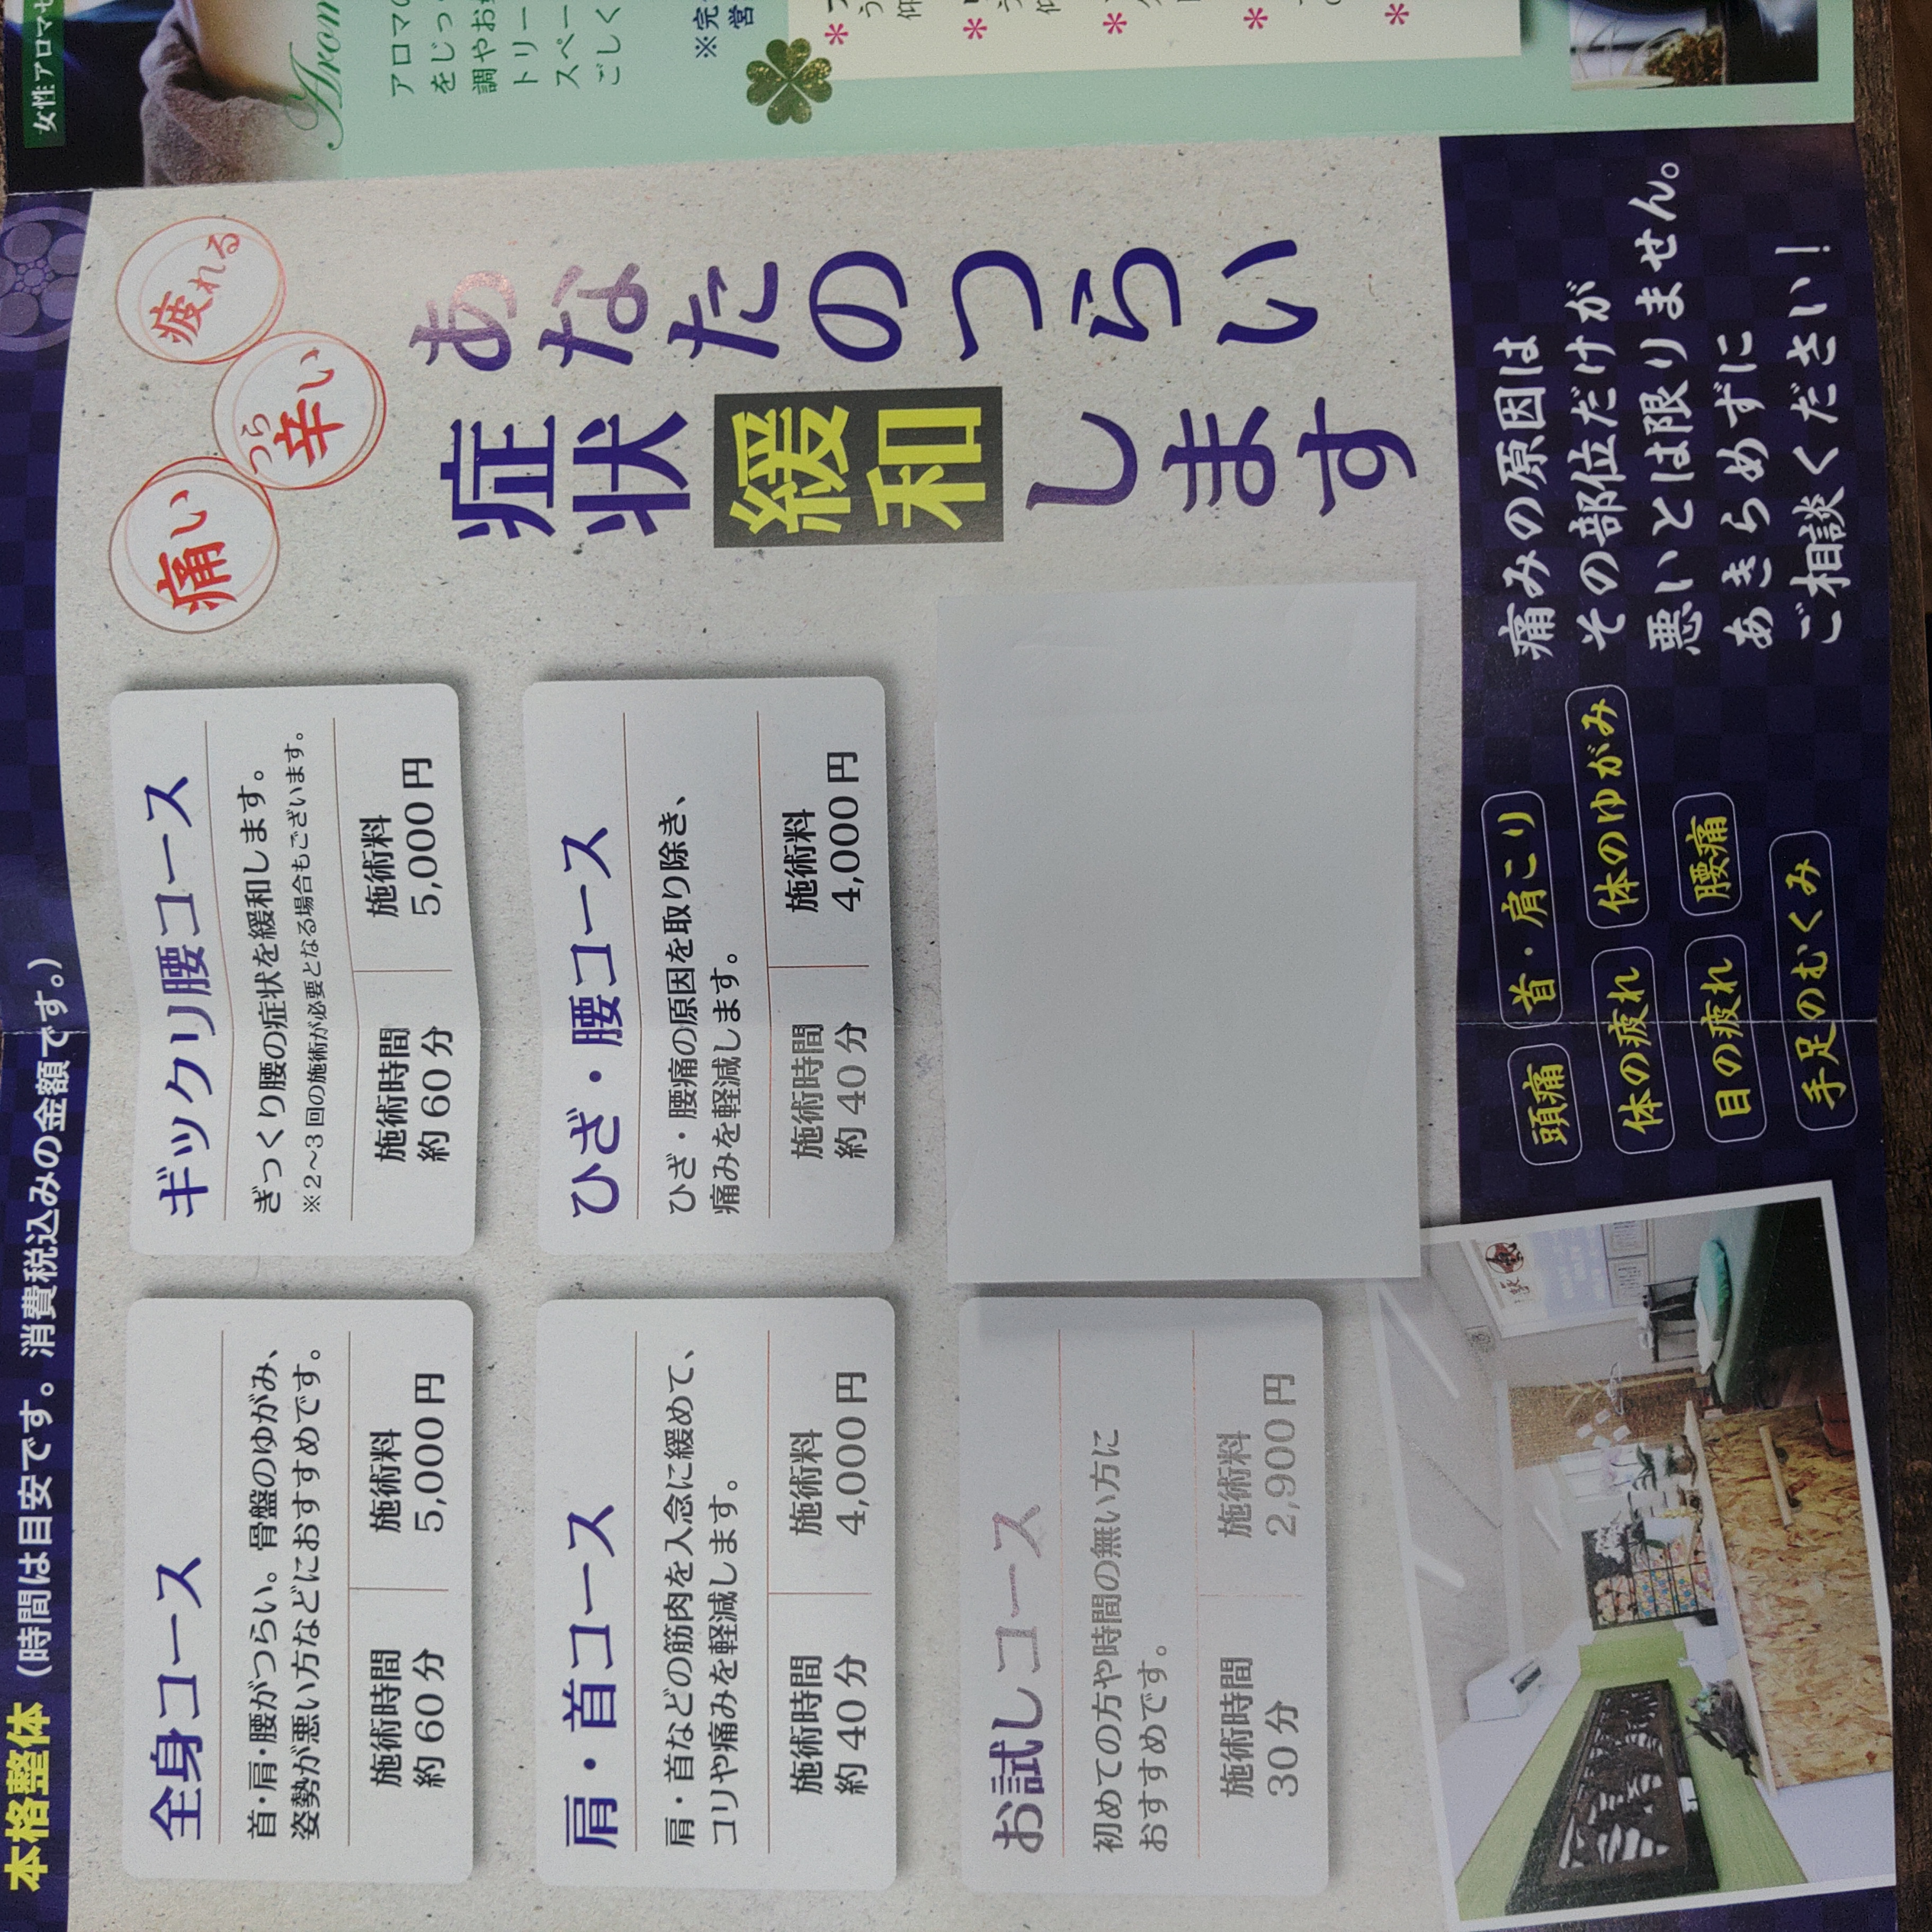 本格整体（時間は目安です。消費税込みの金額です。）
全身コース
首・肩・腰がつらい。骨盤のゆがみ、
姿勢が悪い方などにおすすめです。
施術時間
約60分
施術料
5,000円
ギックリ腰コース
ぎっくり腰の症状を緩和します。
※2～3回の施術が必要となる場合もございます。
施術時間
約60分
施術料
5,000円
肩・首コース
肩・首などの筋肉を入念に緩めて、
コリや痛みを軽減します。
施術時間
約40分
施術料
4,000円
ひざ・腰コース
ひざ・腰痛の原因を取り除き、
痛みを軽減します。
施術時間
約40分
施術料
4,000円
お試しコース
初めての方や時間の無い方に
おすすめです。
施術時間
30分
施術料
2,900円
疲れる
辛い
つら
痛い
あなたのつらい
症状緩和します
頭痛
首・肩こり
体の疲れ
体のゆがみ
目の疲れ
腰痛
手足のむくみ
痛みの原因は
その部位だけが
悪いとは限りません。
あきらめずに
ご相談ください！
女性アロマセ
Arom
アロマの
をじっ
調やお
トリー
スペー
ごしく
※完
営